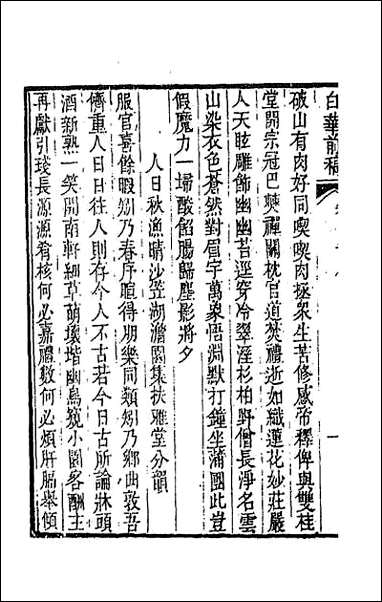 白華前稿
破山有肉好同喫喫肉拯衆生苦修感帝釋俾與雙桂
堂開宗冠巴僰禪關枕官道焚禮逝如織蓮花妙莊嚴
人天眩雕飾幽幽苦逕穿冷翠溼杉柏野僧長淨名雲
山染衣色蒼然對眉宇萬象悟淵默打鐘坐蒲團此豈
假魔力一埽酸餡腸歸塵影將夕
人日秋漁晴沙笠湖澹園集扶雅堂分韻
服官喜餘暇矧乃春序暄得朋樂同類矧乃鄉曲敦吾
儕重人日日往人則存今人不古若今日古所論牀頭
酒新熟一笑開南軒細草萌壞堦幽鳥窺小園客酬主
再獻引琖長源源肴核何必嘉禮數何必煩肝膈舉傾